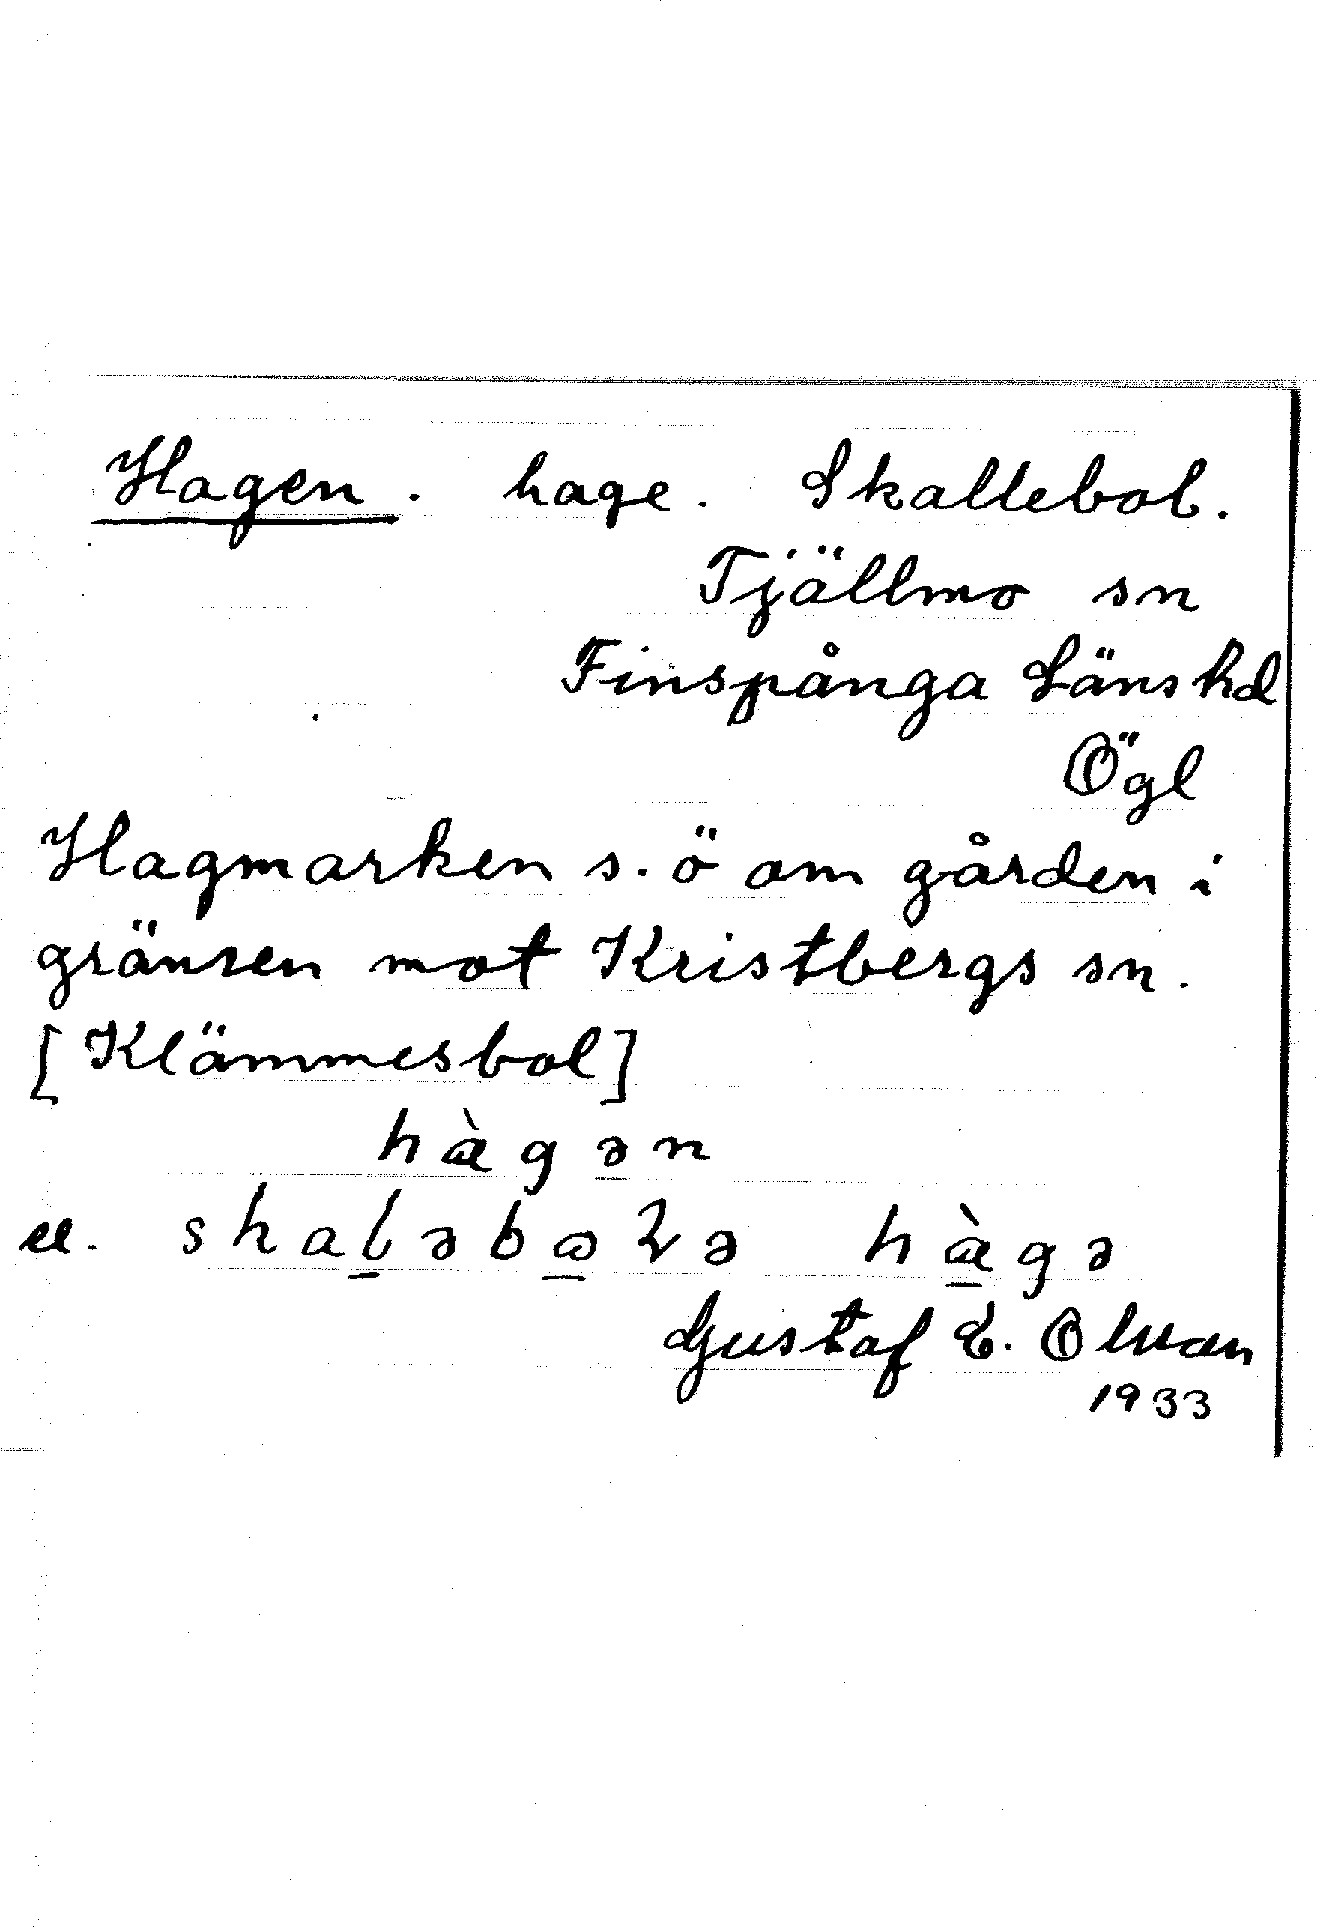 Hagen. hage. Skallebol.
Tjällmo sn
Finspånga Läns hd
Ögl
Hagmarken s. ö om gården i
gränsen mot Kristbergs sn.
[Klämmesbol]
hàgən
el. skaləb hàgə
Gustaf E. Olsson
1933